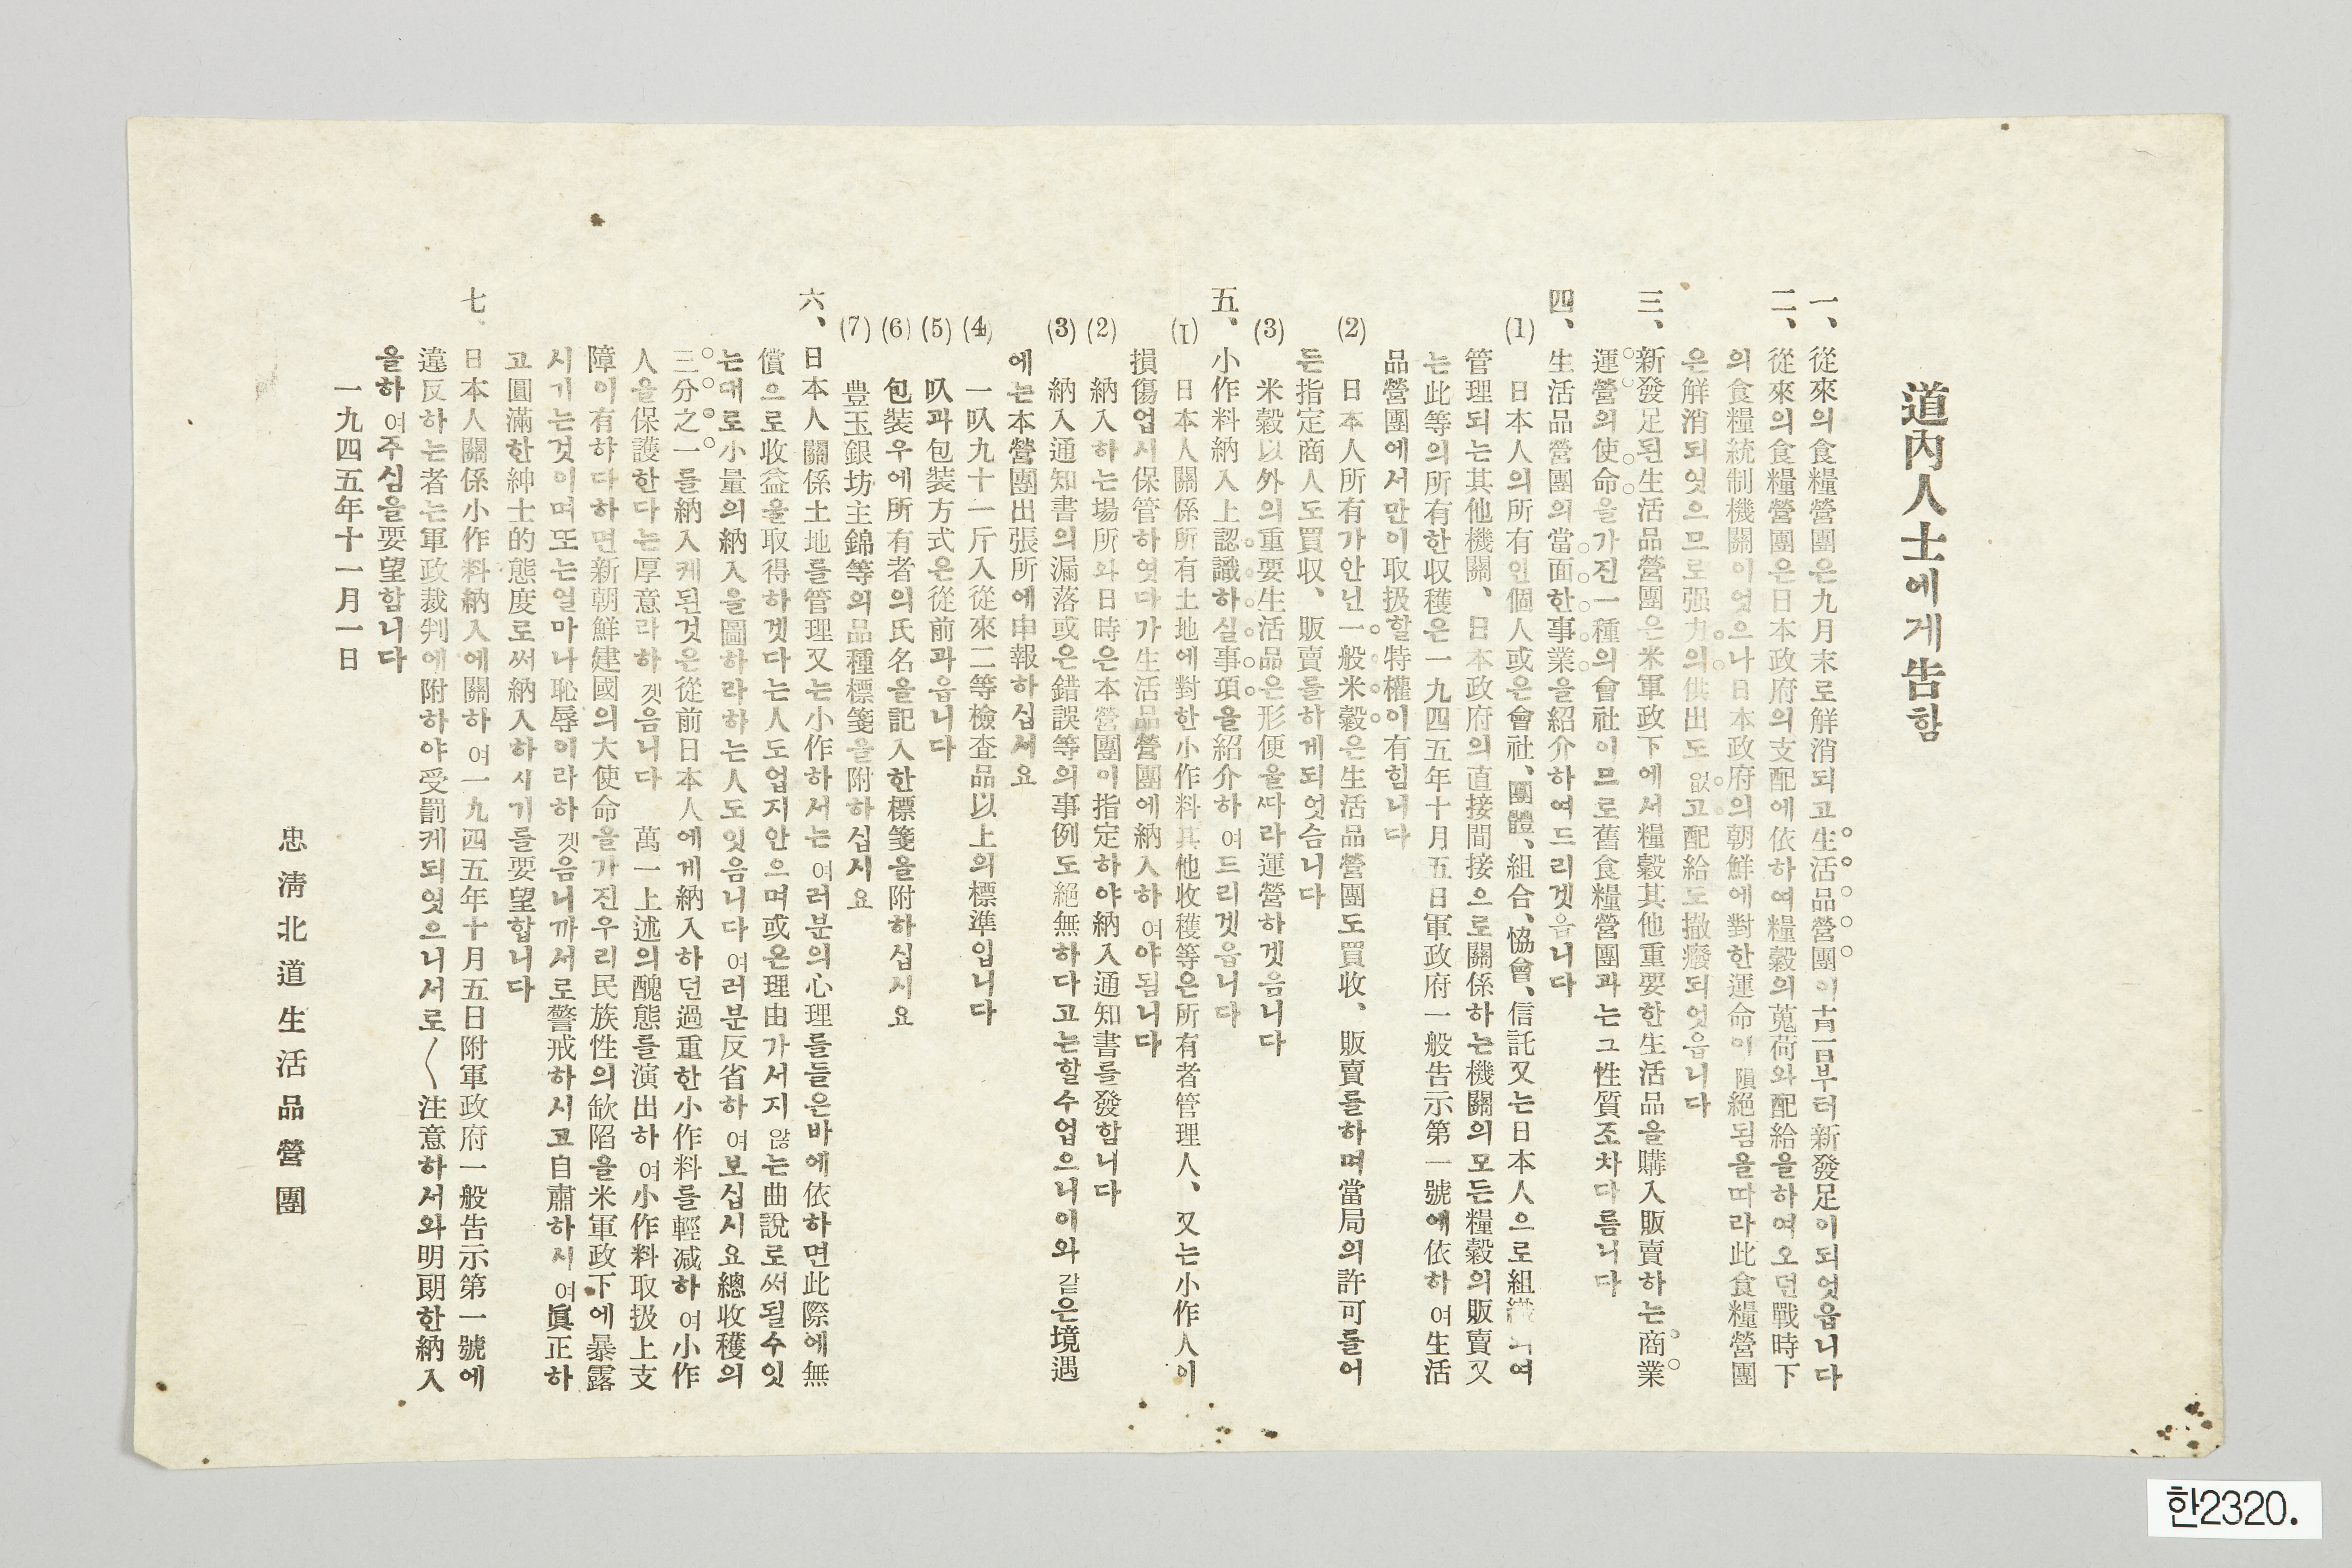 道內人士에게告함
一、從來의食糧營團은九月末로解消되고生活品營團이十一月一日부터新發足이되엿읍니다
二、從來의食糧營團은日本政府의支配에依하여糧穀의蒐荷와配給을하여오던戰時下
의食糧統制機關이엇으나日本政府의朝鮮에對한運命이隕絕됨을따라此食糧營團
은解消되엿으므로强力의供出도없고配給도撤癈되엿읍니다
三、新發足된生活品營團은米軍政下에서糧穀其他重要한生活品을購入販賣하는商業
運營의使命을가진一種의會社이므로舊食糧營團과는그性質조차다름니다
四、生活品營團의當面한事業을紹介하여드리겟음니다
(1) 日本人의所有인個人或은會社、團體、組合、協會、信託又는日本人으로組織되여
管理되는其他機關、日本政府의直接間接으로關係하는機關의모든糧穀의販賣又
는此等의所有한収穫은一九四五年十月五日軍政府一般告示第一號에依하여生活
品營團에서만이取扱할特權이有힘니다
(2) 日本人所有가안닌一般米穀은生活品營團도買收、販賣를하며當局의許可를어
든指定商人도買収、販賣를하게되엇슴니다
(3) 米穀以外의重要生活品은形便을따라運營하겟음니다
五、小作料納入上認識하실事項을紹介하여드리겟읍니다
(1) 日本人關係所有土地에對한小作料其他收穫等은所有者管理人、又는小作人이
損傷업시保管하엿다가生活品營團에納入하여야됨니다
(2) 納入하는場所와日時은本營團이指定하야納入通知書를發함니다
(3) 納入通知書의漏落或은錯誤等의事例도絕無하다고는할수업으니이와같은境遇
에는本營團出張所에申報하십서요
(4) 一叺九十一斤入從來二等檢査品以上의標準입니다
(5) 叺과包裝方式은從前과읍니다
(6) 包裝우에所有者의氏名을記入한標箋을附하십시요
(7) 豊玉銀坊主錦等의品種標箋을附하십시요
六、日本人關係土地를管理又는小作하서는여러분의心理를들은바에依하면此際에無
償으로收益을取得하겟다는人도업지안으며或은理由가서지않는曲說로써될수잇
는대로小量의納入을圖하라하는人도잇음니다여러분反省하여보십시요總收穫의
三分之一를納入케된것은從前日本人에게納入하던過重한小作料를輕减하여小作
人을保護한다는厚意라하겟음니다 萬一上述의醜態를演出하여小作料取扱上支
障이有하다하면新朝鮮建國의大使命을가진우리民族性의缺陷을米軍政下에暴露
시기는것이며또는얼마나恥辱이라하겟음니까서로警戒하시고自肅하시여眞正하
고圓滿한紳士的態度로써納入하시기를要望합니다
七、日本人關係小作料納入에關하여一九四五年十月五日附軍政府一般告示第一號에
違反하는者는軍政裁判에附하야受罰케되엿으니서로〱注意하서와明朗한納入
을하여주심을要望함니다
一九四五年十一月一日
忠淸北道生活品營團
한2320.